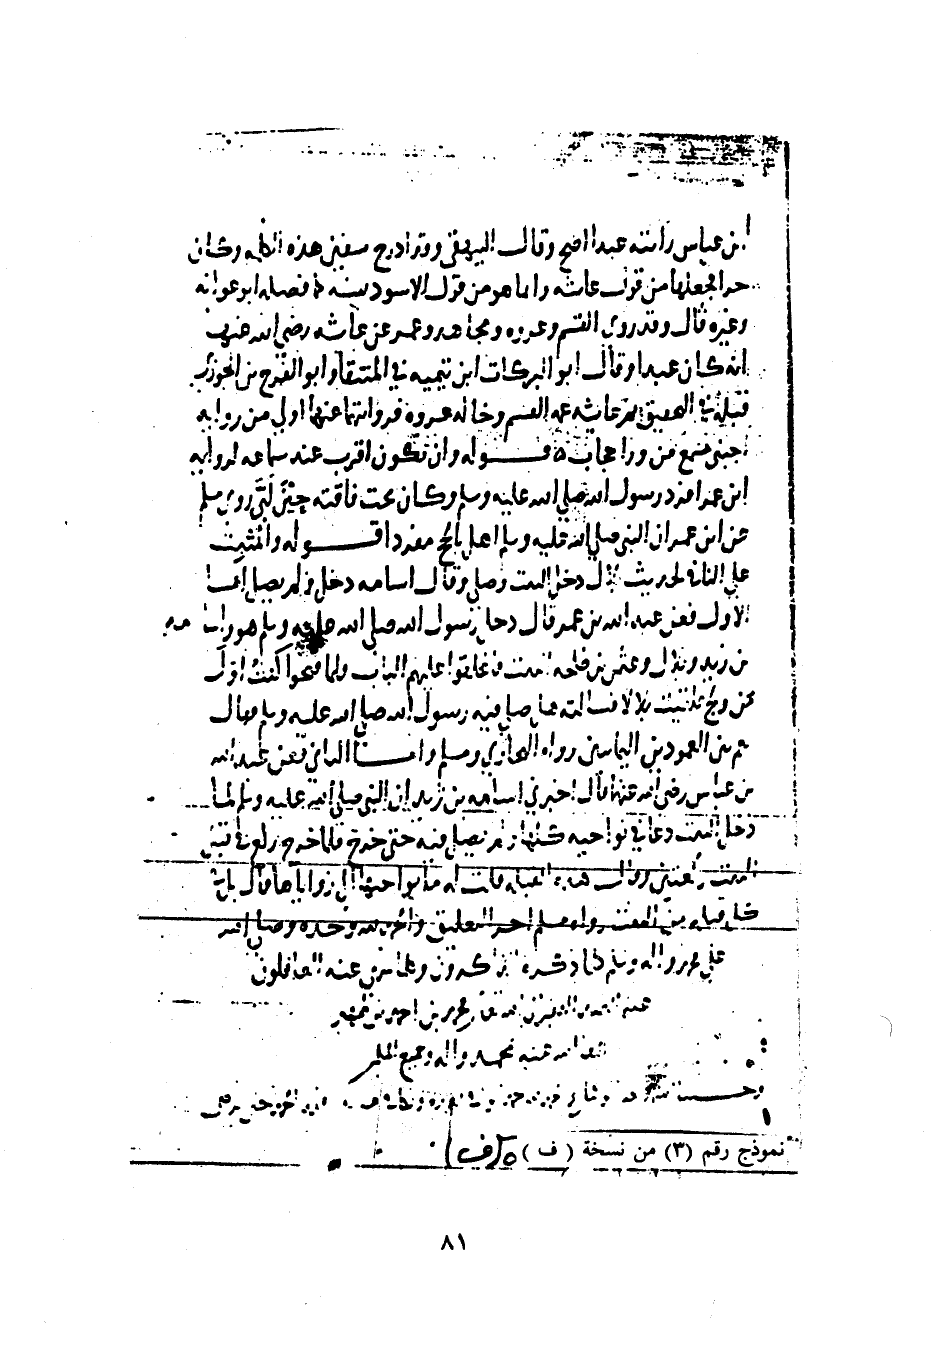 ابن عباس رأيته عبدا اصح وقال البيهقي وقد ادرج سفين هذه الكلمه وكان
جرير يجعلها من قول عائشه وانما هو من قول الاسود بينه كما فصله ابو عوانه
وغيره قال وقد روى القسم وعروه ومجاهد وعمره عن عائشه رضي الله عنها
انه كان عبدا وقال ابو البركات ابن تيميه في المنتقا وابو الفرج بن الجوزي
قبله في التحقيق عائشه عمه القسم وخاله عروه فروايتهما عنها اولى من روايه
اجنبي يسمع من وراء حجاب ه قوله وان تكون اقرب عند سماعه لروايه
ابن عمر افرد رسول الله صلى الله عليه وسلم وكان تحت ناقته حين لبى روى مسلم
عن ابن عمر ان النبي صلى الله عليه وسلم اهل بالحج مفردا قوله والمثبت
على النافي لحديث بلال دخل البيت وصلى وقال اسامه دخل ولم يصل اما
الاول فعن عبد الله بن عمر قال دخل رسول الله صلى الله عليه وسلم هو واسامه
بن زيد وبلال وعثمن بن طلحه البيت فاغلقوا عليهم الباب ولما فتحوا كنت اول
من ولج فلقيت بلالا فسالته هل صلى فيه رسول الله صلى الله عليه وسلم فقال
نعم بين العمودين اليمانيين رواه البخاري ومسلم واما الثاني فعن عبد الله
بن عباس رضي الله عنهما قال اخبرني اسامه بن زيد ان النبي صلى الله عليه وسلم لما
دخل البيت دعا في نواحيه كلها ولم يصل فيه حتى خرج فلما خرج ركع في قبل
البيت ركعتين وقال هذه القبله قلت له ما نواحيها افي زواياها قال بل في
كل قبله من البيت رواه مسلم اخر التعليق والحمد لله وحده وصلى الله
على محمد واله وسلم كلما ذكره الذاكرون وكلما سهى عنه الغافلون
محمد بن احمد بن
عفا الله عنه بمحمد واله وجميع
نموذج رقم (٣) من نسخة ( ف )
٨١